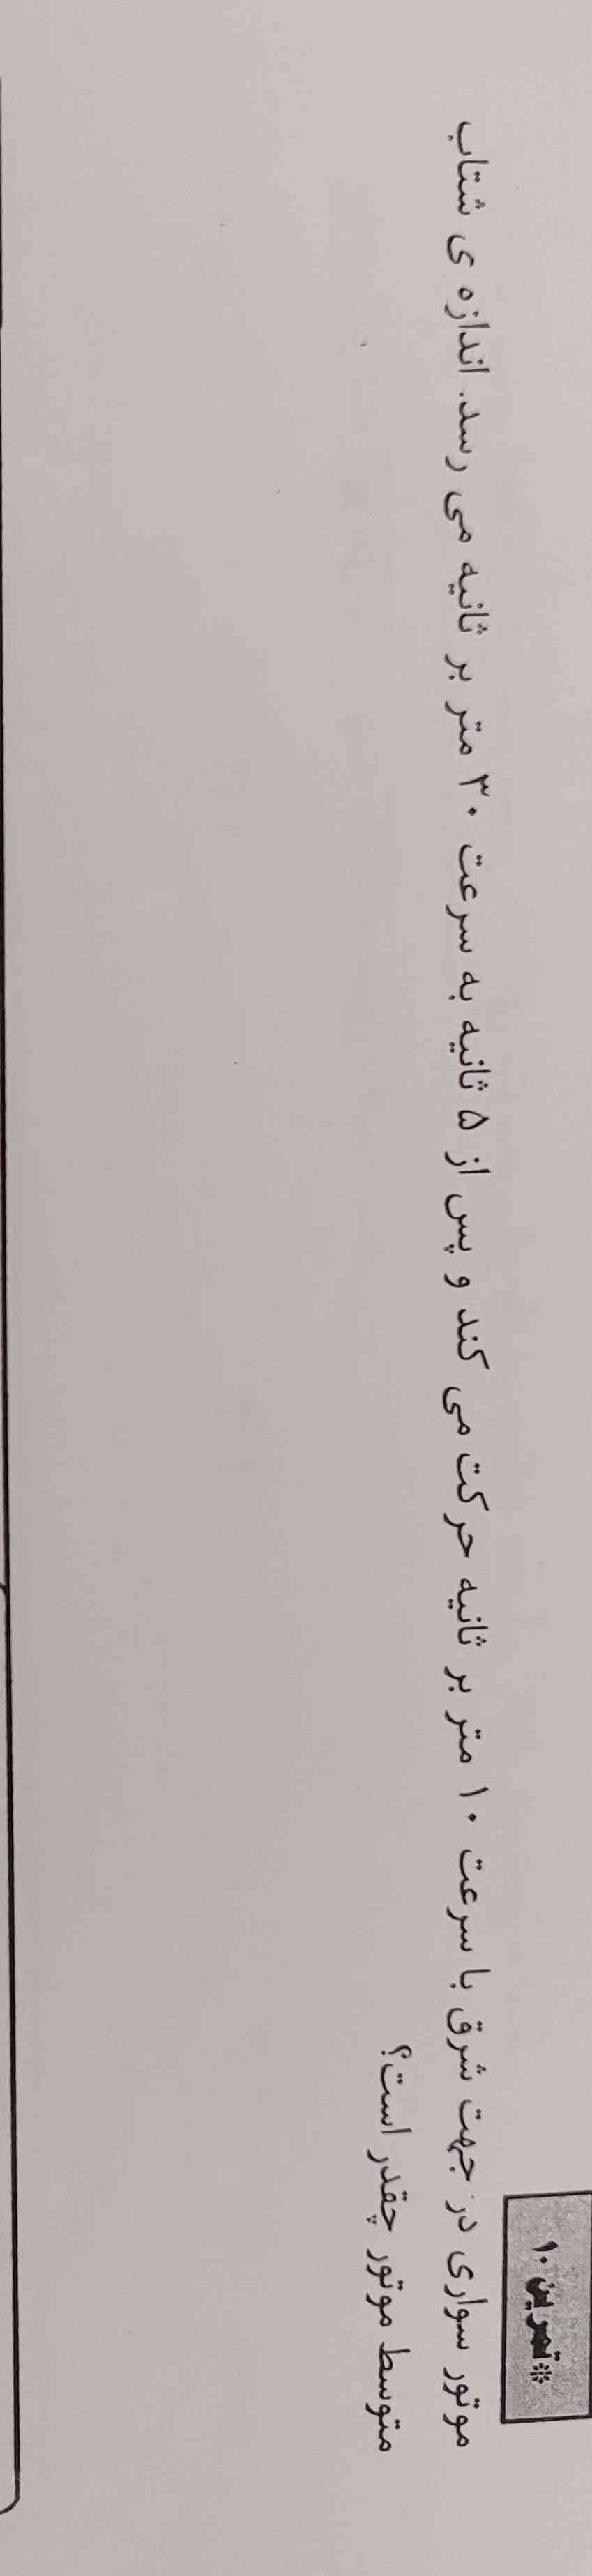 *تمرین ۱۰
موتور سواری در جهت شرق با سرعت ۱۰ متر بر ثانیه حرکت می کند و پس از ۵ ثانیه به سرعت ۳۰ متر بر ثانیه می رسد. اندازه ی شتاب
متوسط موتور چقدر است؟